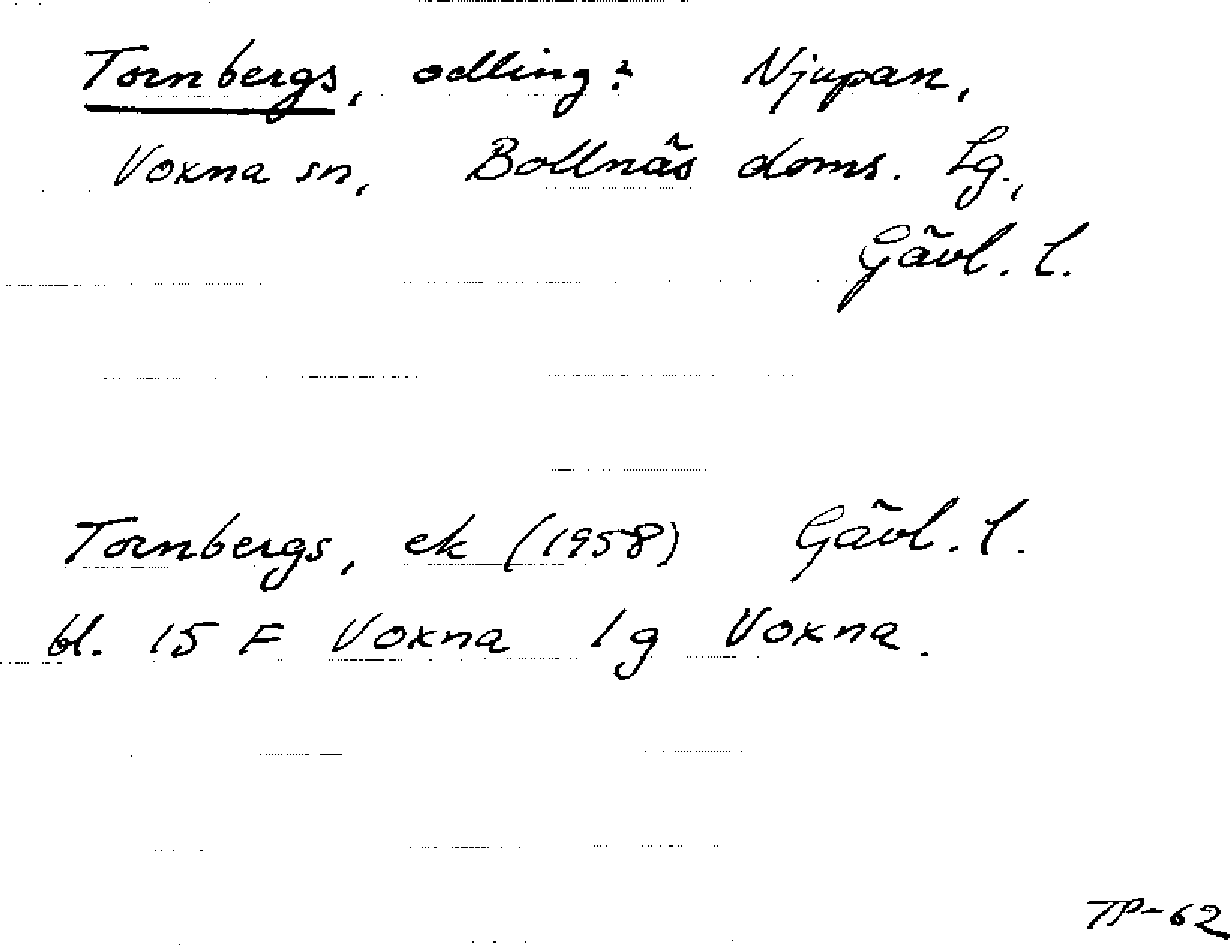 Tornbergs, odling: Njupan,
Voxna sn, Bollnäs doms. Lg.,
Gävl. l.
Tornbergs, ek (1958) Gävl. l.
bl. 15 F Voxna 1g Voxna.
TP-62